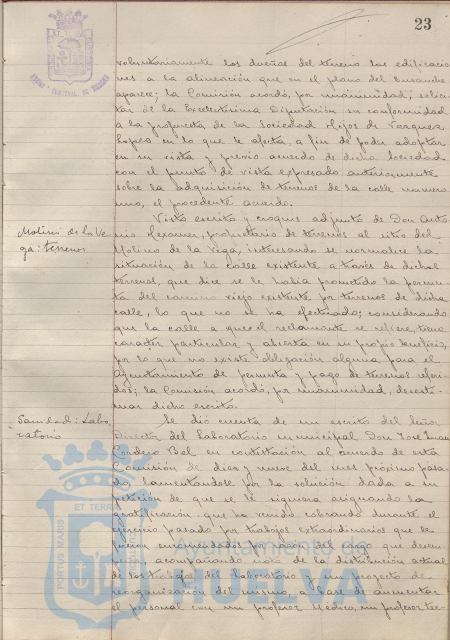 23
voluntariamente los dueños del terreno las edificacio
nes a la alineación que en el plano del ensanche
aparece; la Comisión acordó, por unanimidad, solici
tar de la Excelentísima Diputación su conformidad
a la propuesta de la Sociedad Hijos de Vazquez
López en lo que le afecta, a fin de poder adoptar
en su vista y previo acuerdo de dicha Sociedad
con el punto de vista expresado anteriormente
sobre la adquisición de terrenos de la calle numero
uno, el procedente acuerdo.
Molino de la Ve
ga: terrenos
Visto escrito y croquis adjunto de Don Anto
nio propietario de terrenos al sitio del
Molino de la Vega, interesando se normalice la
situación de la calle existente a través de dichos
terrenos, que dice se le había prometido la permu
ta del camino viejo existente por terrenos de dicha
calle, lo que no se ha efectuado; considerando
que la calle a que el reclamante se refiere, tiene
carácter particular y abierta en su propio beneficio,
por lo que no existe obligación alguna para el
Ayuntamiento de permuta y pago de terrenos referi
dos; la Comisión acordó, por unanimidad, desesti
mar dicho escrito.
Sanidad: Labo
ratorio
Se dió cuenta de un escrito del Señor
Director del Laboratorio municipal Don José Juan
Cordero Bel en contestación al acuerdo de esta
Comisión de diez y nueve del mes próximo pasa
do lamentándose por la solución dada a su
petición de que se le siguiera asignando la
gratificación que ha venido cobrando durante el
ejercicio pasado por trabajos extraordinarios que le
fueron encomendados por razón del cargo que desem
peña acompañando nota de la distribución actual
de los trabajos del laboratorio y un proyecto de
reorganización del mismo, a base de aumentar
el personal con un profesor Médico, un profesor
Ayuntamiento de
HUELVA
PORTUS MARIS ET TERRAE